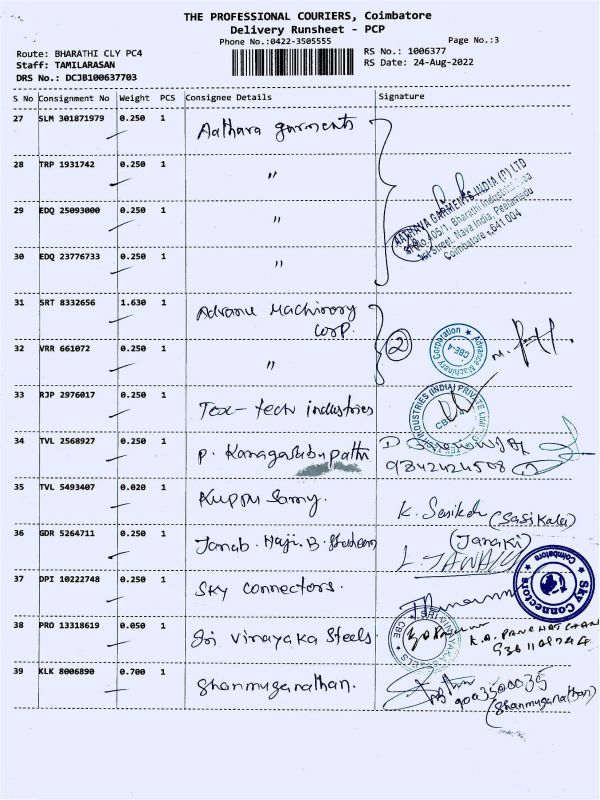 THE PROFESSIONAL COURIERS, Coimbatore
Delivery Runsheet - PCP
Phone No.:0422-3505555
Page No.:3
Route: BHARATHI CLY PC4
RS No.: 1006377
Staff: TAMILARASAN
RS Date: 24-Aug-2022
DRS No.: DCJB100637703
S No Consignment No Weight PCS Consignee Details Signature
27 SLM 301871979 0.250 1 Aathava garments
28 TRP 1931742 0.250 1 "
AATHAVA GARMENTS INDIA (P) LTD
405/1, Bharathi Industrial Area
1st Street, Nava India, Peelamedu
Coimbatore - 641 004
29 EDQ 25093000 0.250 1 "
30 EDQ 23776733 0.250 1 "
31 SRT 8332656 1.630 1 Advance Machinery
Corp.
2
Advance Machinery Corporation
CBE-4
32 VRR 661072 0.250 1 "
33 RJP 2976017 0.250 1 Tex-tech industries
INDUSTRIES (INDIA) PRIVATE
34 TVL 2568927 0.250 1 P. Kanagasubupathi
9842424508
35 TVL 5493407 0.020 1 Kuppu Samy.
K. Sasikala (Sasikala)
36 GDR 5264711 0.250 1 Janab. Haji. B.
(Janaki)
L. JANAKI
37 DPI 10222748 0.250 1 Sky connectors.
Sky Connectors
Coimbatore
38 PRO 13318619 0.050 1 Sri Vinayaka Steels.
CBE
39 KLK 8006890 0.700 1 Shanmuganathan.
9003500035
(Shanmuganathan)